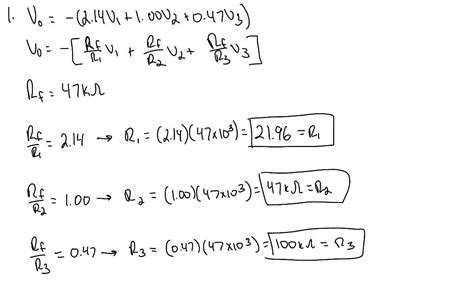 1. V₀ = -(2.14V₁ + 1.00V₂ + 0.47V₃)
V₀ = -[Rf/R₁ V₁ + Rf/R₂ V₂ + Rf/R₃ V₃]
Rf = 47kΩ
Rf/R₁ = 2.14 → R₁ = (2.14)(47x10³) = 21.96 = R₁
Rf/R₂ = 1.00 → R₂ = (1.00)(47x10³) = 47kΩ = R₂
Rf/R₃ = 0.47 → R₃ = (0.47)(47x10³) = 100kΩ = R₃